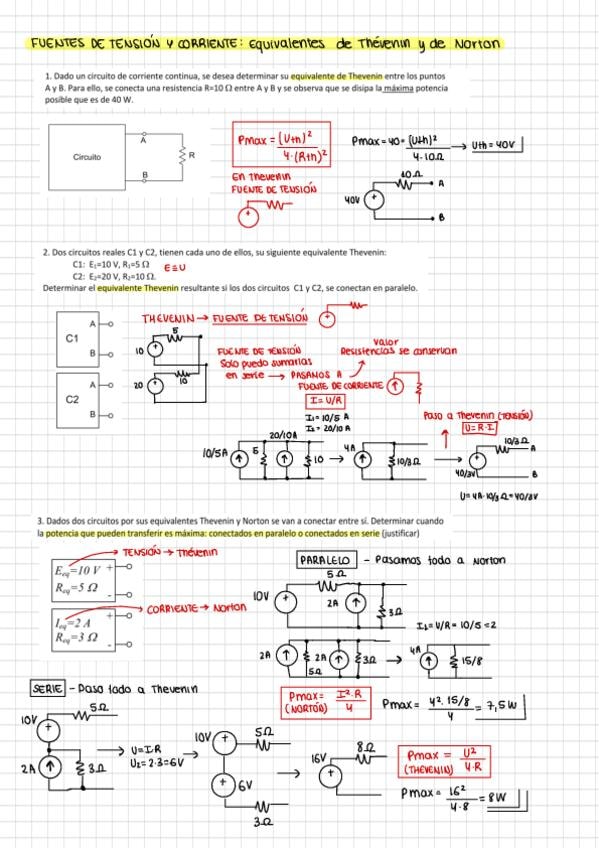 FUENTES DE TENSIÓN Y CORRIENTE: Equivalentes de Thévenin y de Norton
1. Dado un circuito de corriente continua, se desea determinar su equivalente de Thevenin entre los puntos
A y B. Para ello, se conecta una resistencia R=10 Ω entre A y B y se observa que se disipa la máxima potencia
posible que es de 40 W.
Circuito
A
B
R
Pmax = (Uth)² / 4·(Rth)²
En Thevenin
FUENTE DE TENSIÓN
Pmax = 40 = (Uth)² / 4·10Ω → Uth = 40V
10Ω
40V
A
B
2. Dos circuitos reales C1 y C2, tienen cada uno de ellos, su siguiente equivalente Thevenin:
C1: E₁=10 V, R₁=5 Ω
E≡U
C2: E₂=20 V, R₂=10 Ω.
Determinar el equivalente Thevenin resultante si los dos circuitos C1 y C2, se conectan en paralelo.
C1
A
B
C2
A
B
THEVENIN → FUENTE DE TENSIÓN
5
10
20
10
FUENTE DE TENSIÓN
Solo puedo sumarlas
en serie → PASAMOS A
FUENTE DE CORRIENTE
valor
Resistencias se conservan
I = U/R
I₁ = 10/5 A
I₂ = 20/10 A
10/5A
5
20/10A
10
→
4A
10/3Ω
→
Paso a Thevenin (TENSIÓN)
U=R·I
10/3Ω
40/3V
A
B
U= 4A·10/3Ω=40/3V
3. Dados dos circuitos por sus equivalentes Thevenin y Norton se van a conectar entre sí. Determinar cuando
la potencia que pueden transferir es máxima: conectados en paralelo o conectados en serie (justificar)
TENSIÓN → Thévenin
E_eq=10 V
R_eq=5 Ω
+
-
CORRIENTE → Norton
I_eq=2 A
R_eq=3 Ω
+
-
PARALELO - Pasamos todo a Norton
5Ω
10V
2A
3Ω
I₁= V/R = 10/5 =2
2A
5Ω
2A
3Ω
→
4A
15/8
Pmax= I²·R / 4
(NORTON)
Pmax = 4²·15/8 / 4 = 7,5W
SERIE - Paso todo a Thevenin
10V
5Ω
2A
3Ω
→ U=I·R
U₂= 2·3=6V →
10V
5Ω
6V
3Ω
→
16V
8Ω
Pmax = U² / 4·R
(THEVENIN)
Pmax = 16² / 4·8 = 8W